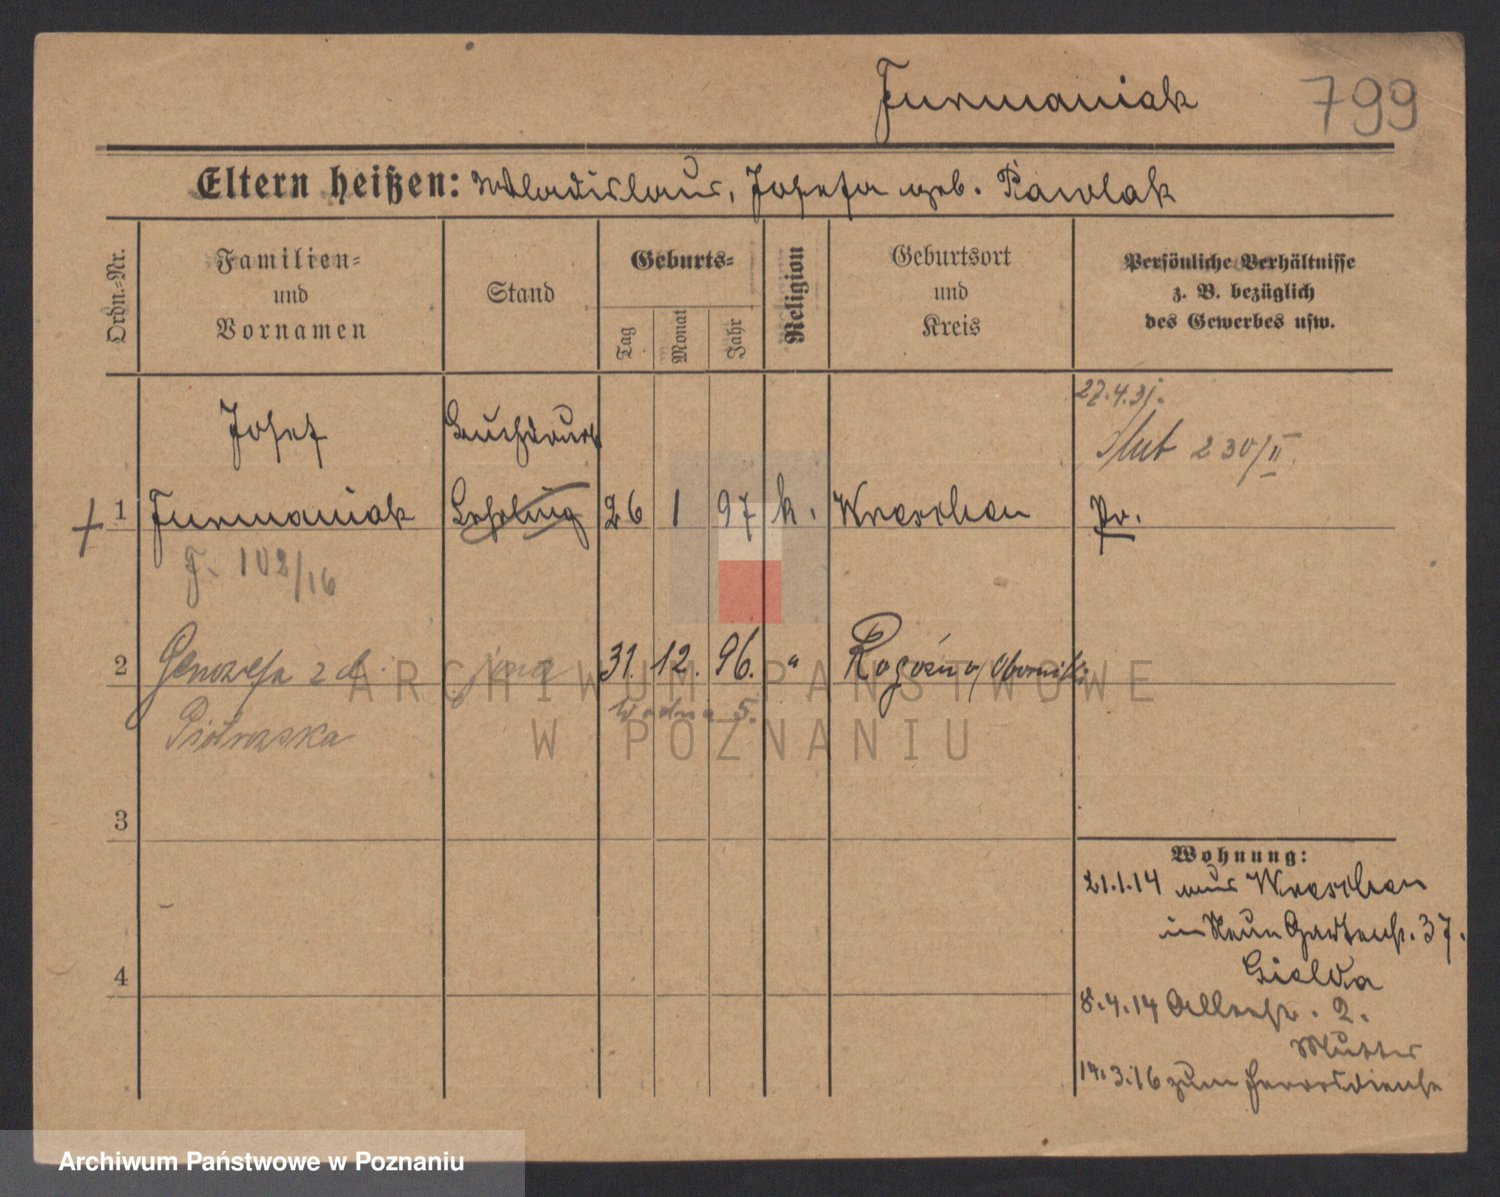 Furmaniak 799
Eltern heißen: Wladislaus, Josefa geb. Pawlak
Ordn.=Nr.
Familien=
und
Vornamen
Stand
Geburts=
Tag
Monat
Jahr
Religion
Geburtsort
und
Kreis
Persönliche Verhältnisse
z. B. bezüglich
des Gewerbes usw.
27.4.31.
Josef
Slub 230/II.
1 Furmaniak Lehrling 26 1 97 k. Wreschen Pr.
F. 102/16
2 Genowefa z d. żona 31. 12. 96. " Rogoźno, Oborniki
Wodna 5.
Piotrowska
ARCHIWUM PAŃSTWOWE
W POZNANIU
3
4
Wohnung:
21.1.14 aus Wreschen
in Neue Gartenstr. 37.
8.4.14 2.
Mutter
14.3.16 zum Heeresdienst
Archiwum Państwowe w Poznaniu